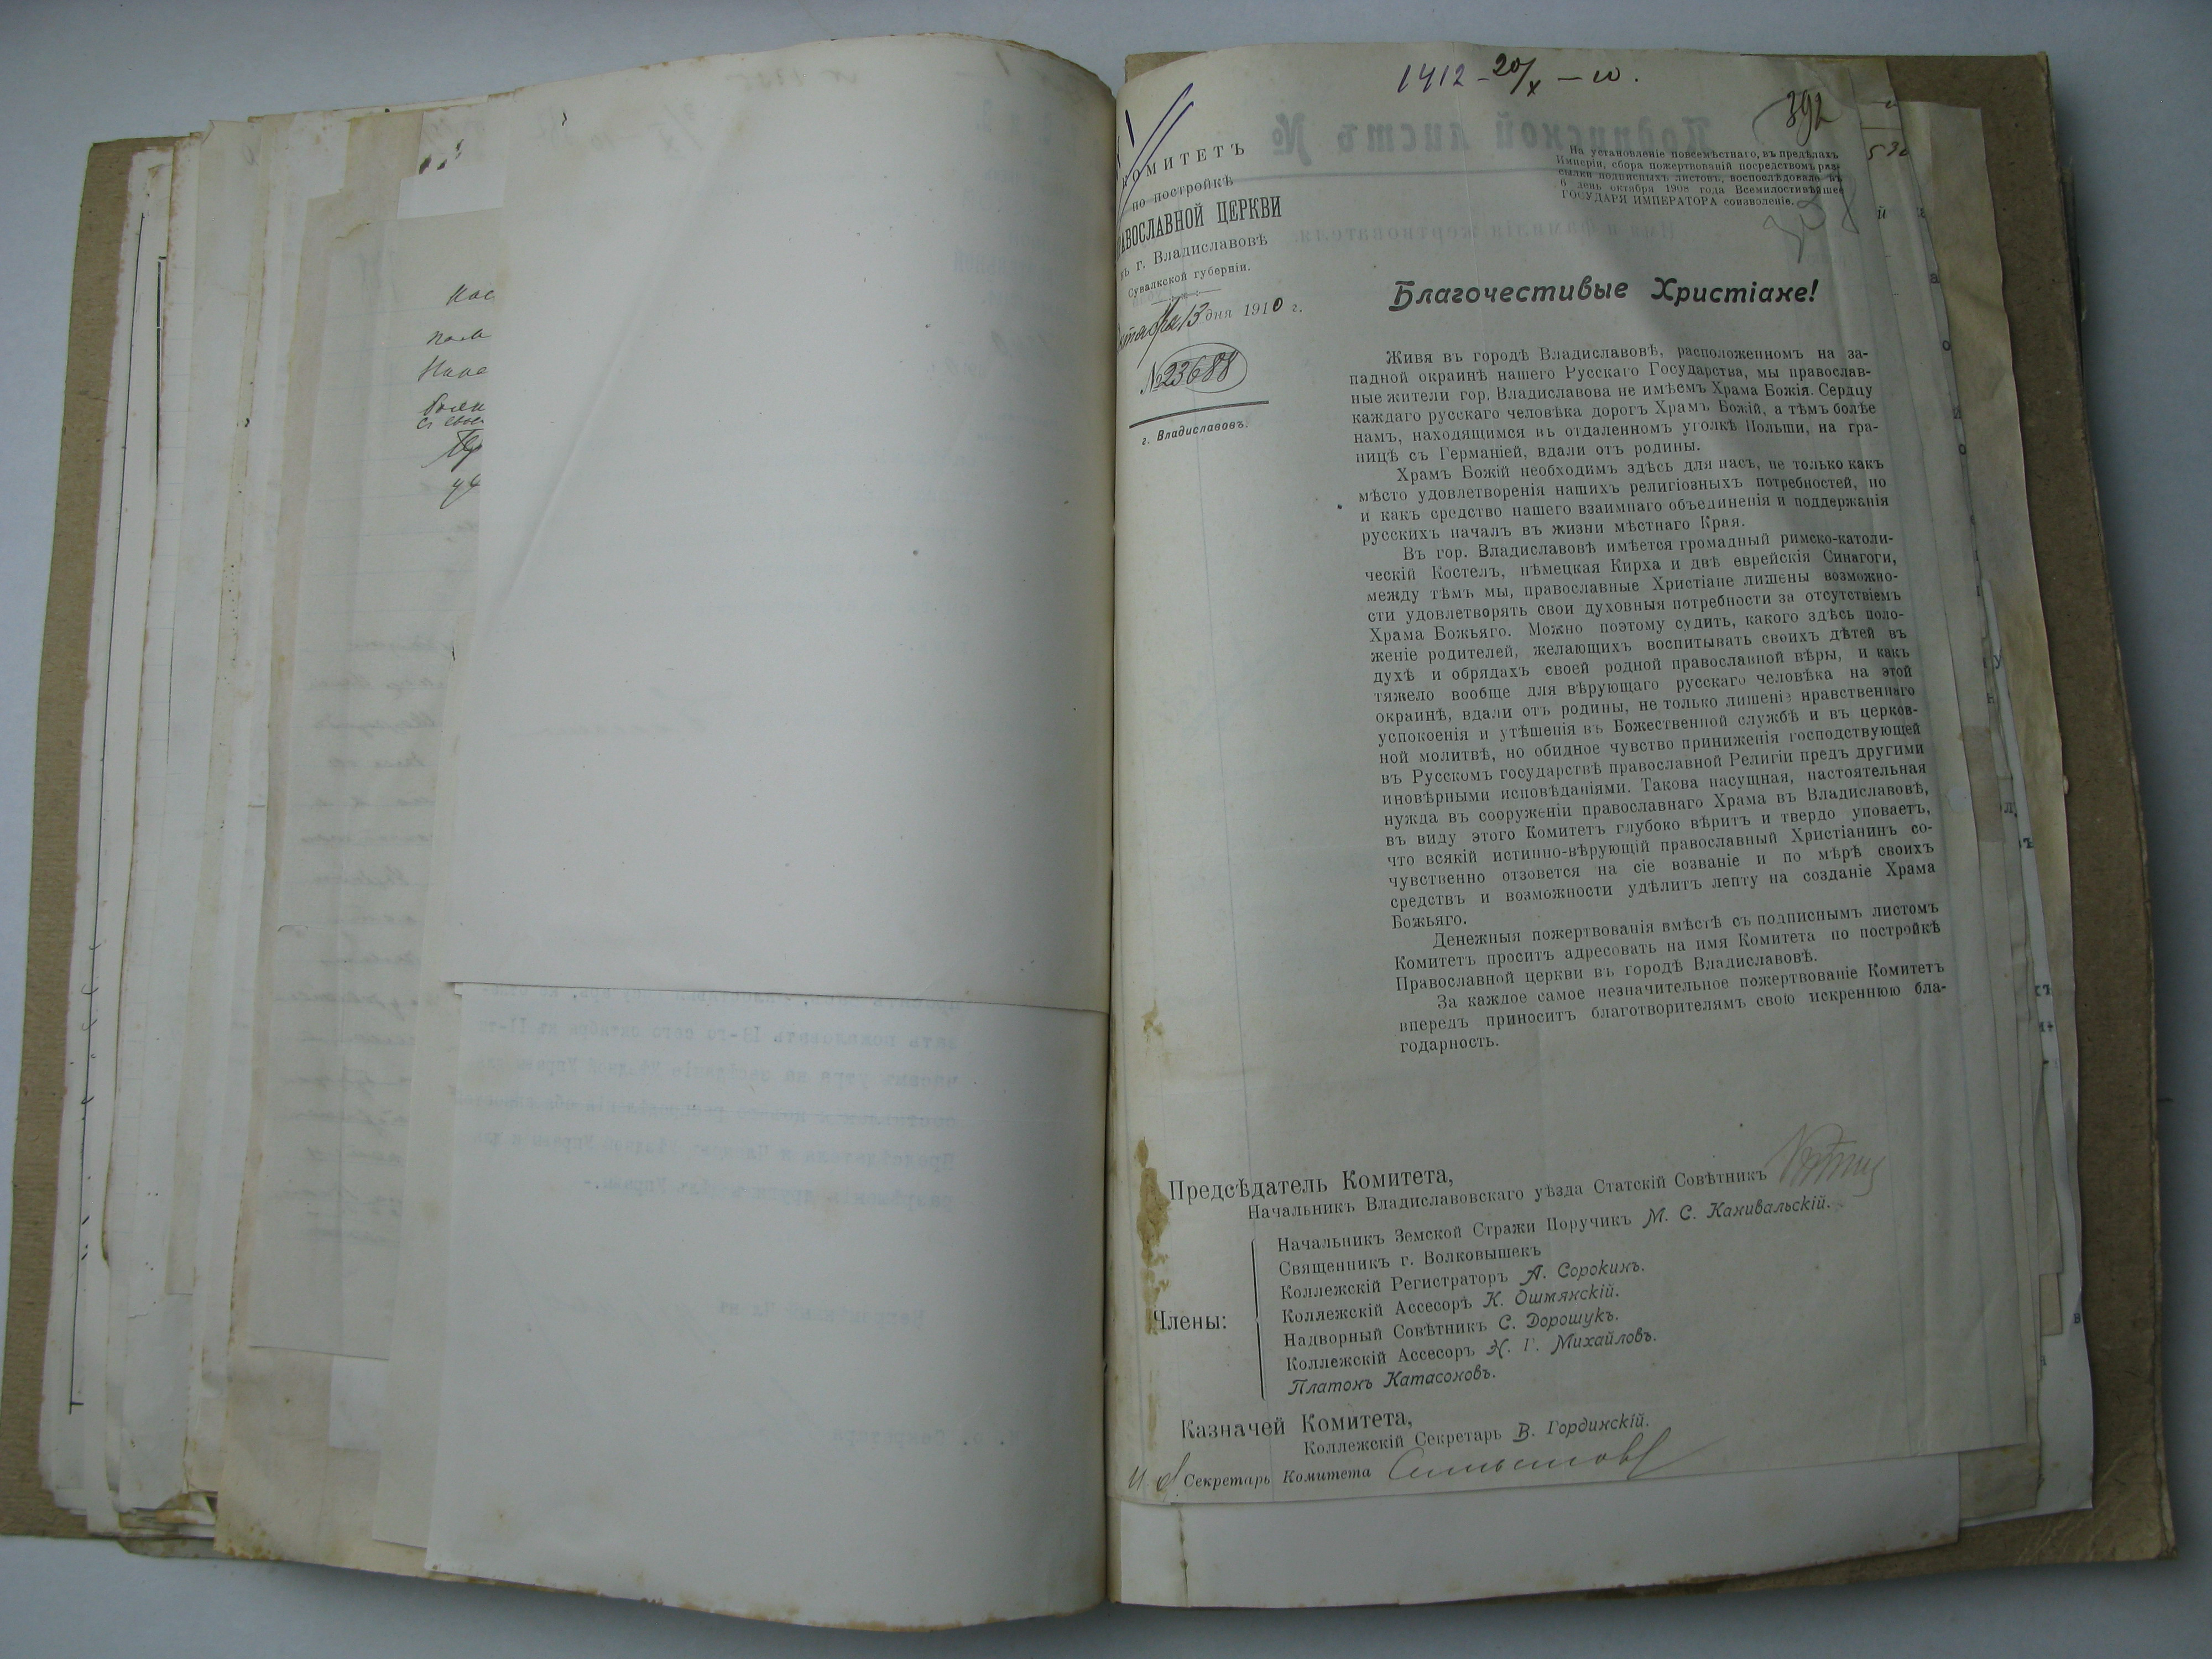 1412 - 20/X - 10.
392
КОМИТЕТЪ
по постройкѣ
ПРАВОСЛАВНОЙ ЦЕРКВИ
въ г. Владиславовѣ
Сувалкской губерніи.
Октября 13 дня 1910 г.
№ 23688
г. Владиславовъ.
На установленіе повсемѣстнаго, въ предѣлахъ
Имперіи, сбора пожертвованій посредствомъ раз-
сылки подписныхъ листовъ, воспослѣдовало въ
6 день октября 1908 года Всемилостивѣйшее
ГОСУДАРЯ ИМПЕРАТОРА соизволеніе.
Благочестивые Христіане!
Живя въ городѣ Владиславовѣ, расположенномъ на за-
падной окраинѣ нашего Русскаго Государства, мы православ-
ные жители гор. Владиславова не имѣемъ Храма Божія. Сердцу
каждаго русскаго человѣка дорогъ Храмъ Божій, а тѣмъ болѣе
намъ, находящимся въ отдаленномъ уголкѣ Польши, на гра-
ницѣ съ Германіей, вдали отъ родины.
Храмъ Божій необходимъ здѣсь для насъ, не только какъ
мѣсто удовлетворенія нашихъ религіозныхъ потребностей, но
и какъ средство нашего взаимнаго объединенія и поддержанія
русскихъ началъ въ жизни мѣстнаго Края.
Въ гор. Владиславовѣ имѣется громадный римско-католи-
ческій Костелъ, нѣмецкая Кирха и двѣ еврейскія Синагоги,
между тѣмъ мы, православные Христіане лишены возможно-
сти удовлетворять свои духовныя потребности за отсутствіемъ
Храма Божьяго. Можно поэтому судить, какого здѣсь поло-
женіе родителей, желающихъ воспитывать своихъ дѣтей въ
духѣ и обрядахъ своей родной православной вѣры, и какъ
тяжело вообще для вѣрующаго русскаго человѣка на этой
окраинѣ, вдали отъ родины, не только лишеніе нравственнаго
успокоенія и утѣшенія въ Божественной службѣ и въ церков-
ной молитвѣ, но обидное чувство приниженія господствующей
въ Русскомъ государствѣ православной Религіи предъ другими
иновѣрными исповѣданіями. Такова насущная, настоятельная
нужда въ сооруженіи православнаго Храма въ Владиславовѣ,
въ виду этого Комитетъ глубоко вѣритъ и твердо уповаетъ,
что всякій истинно-вѣрующій православный Христіанинъ со-
чувственно отзовется на сіе возваніе и по мѣрѣ своихъ
средствъ и возможности удѣлитъ лепту на созданіе Храма
Божьяго.
Денежныя пожертвованія вмѣстѣ съ подписнымъ листомъ
Комитетъ проситъ адресовать на имя Комитета по постройкѣ
Православной церкви въ городѣ Владиславовѣ.
За каждое самое незначительное пожертвованіе Комитетъ
впередъ приноситъ благотворителямъ свою искреннюю бла-
годарность.
Предсѣдатель Комитета,
Начальникъ Владиславовскаго уѣзда Статскій Совѣтникъ
Члены:
Начальникъ Земской Стражи Поручикъ М. С. Канивальскій.
Священникъ г. Волковышекъ
Коллежскій Регистраторъ А. Сорокинъ.
Коллежскій Ассесоръ К. Ошмянскій.
Надворный Совѣтникъ С. Дорошукъ.
Коллежскій Ассесоръ Н. Г. Михайловъ.
Платонъ Катасоновъ.
Казначей Комитета,
Коллежскій Секретарь В. Гординскій.
И. д. Секретарь Комитета